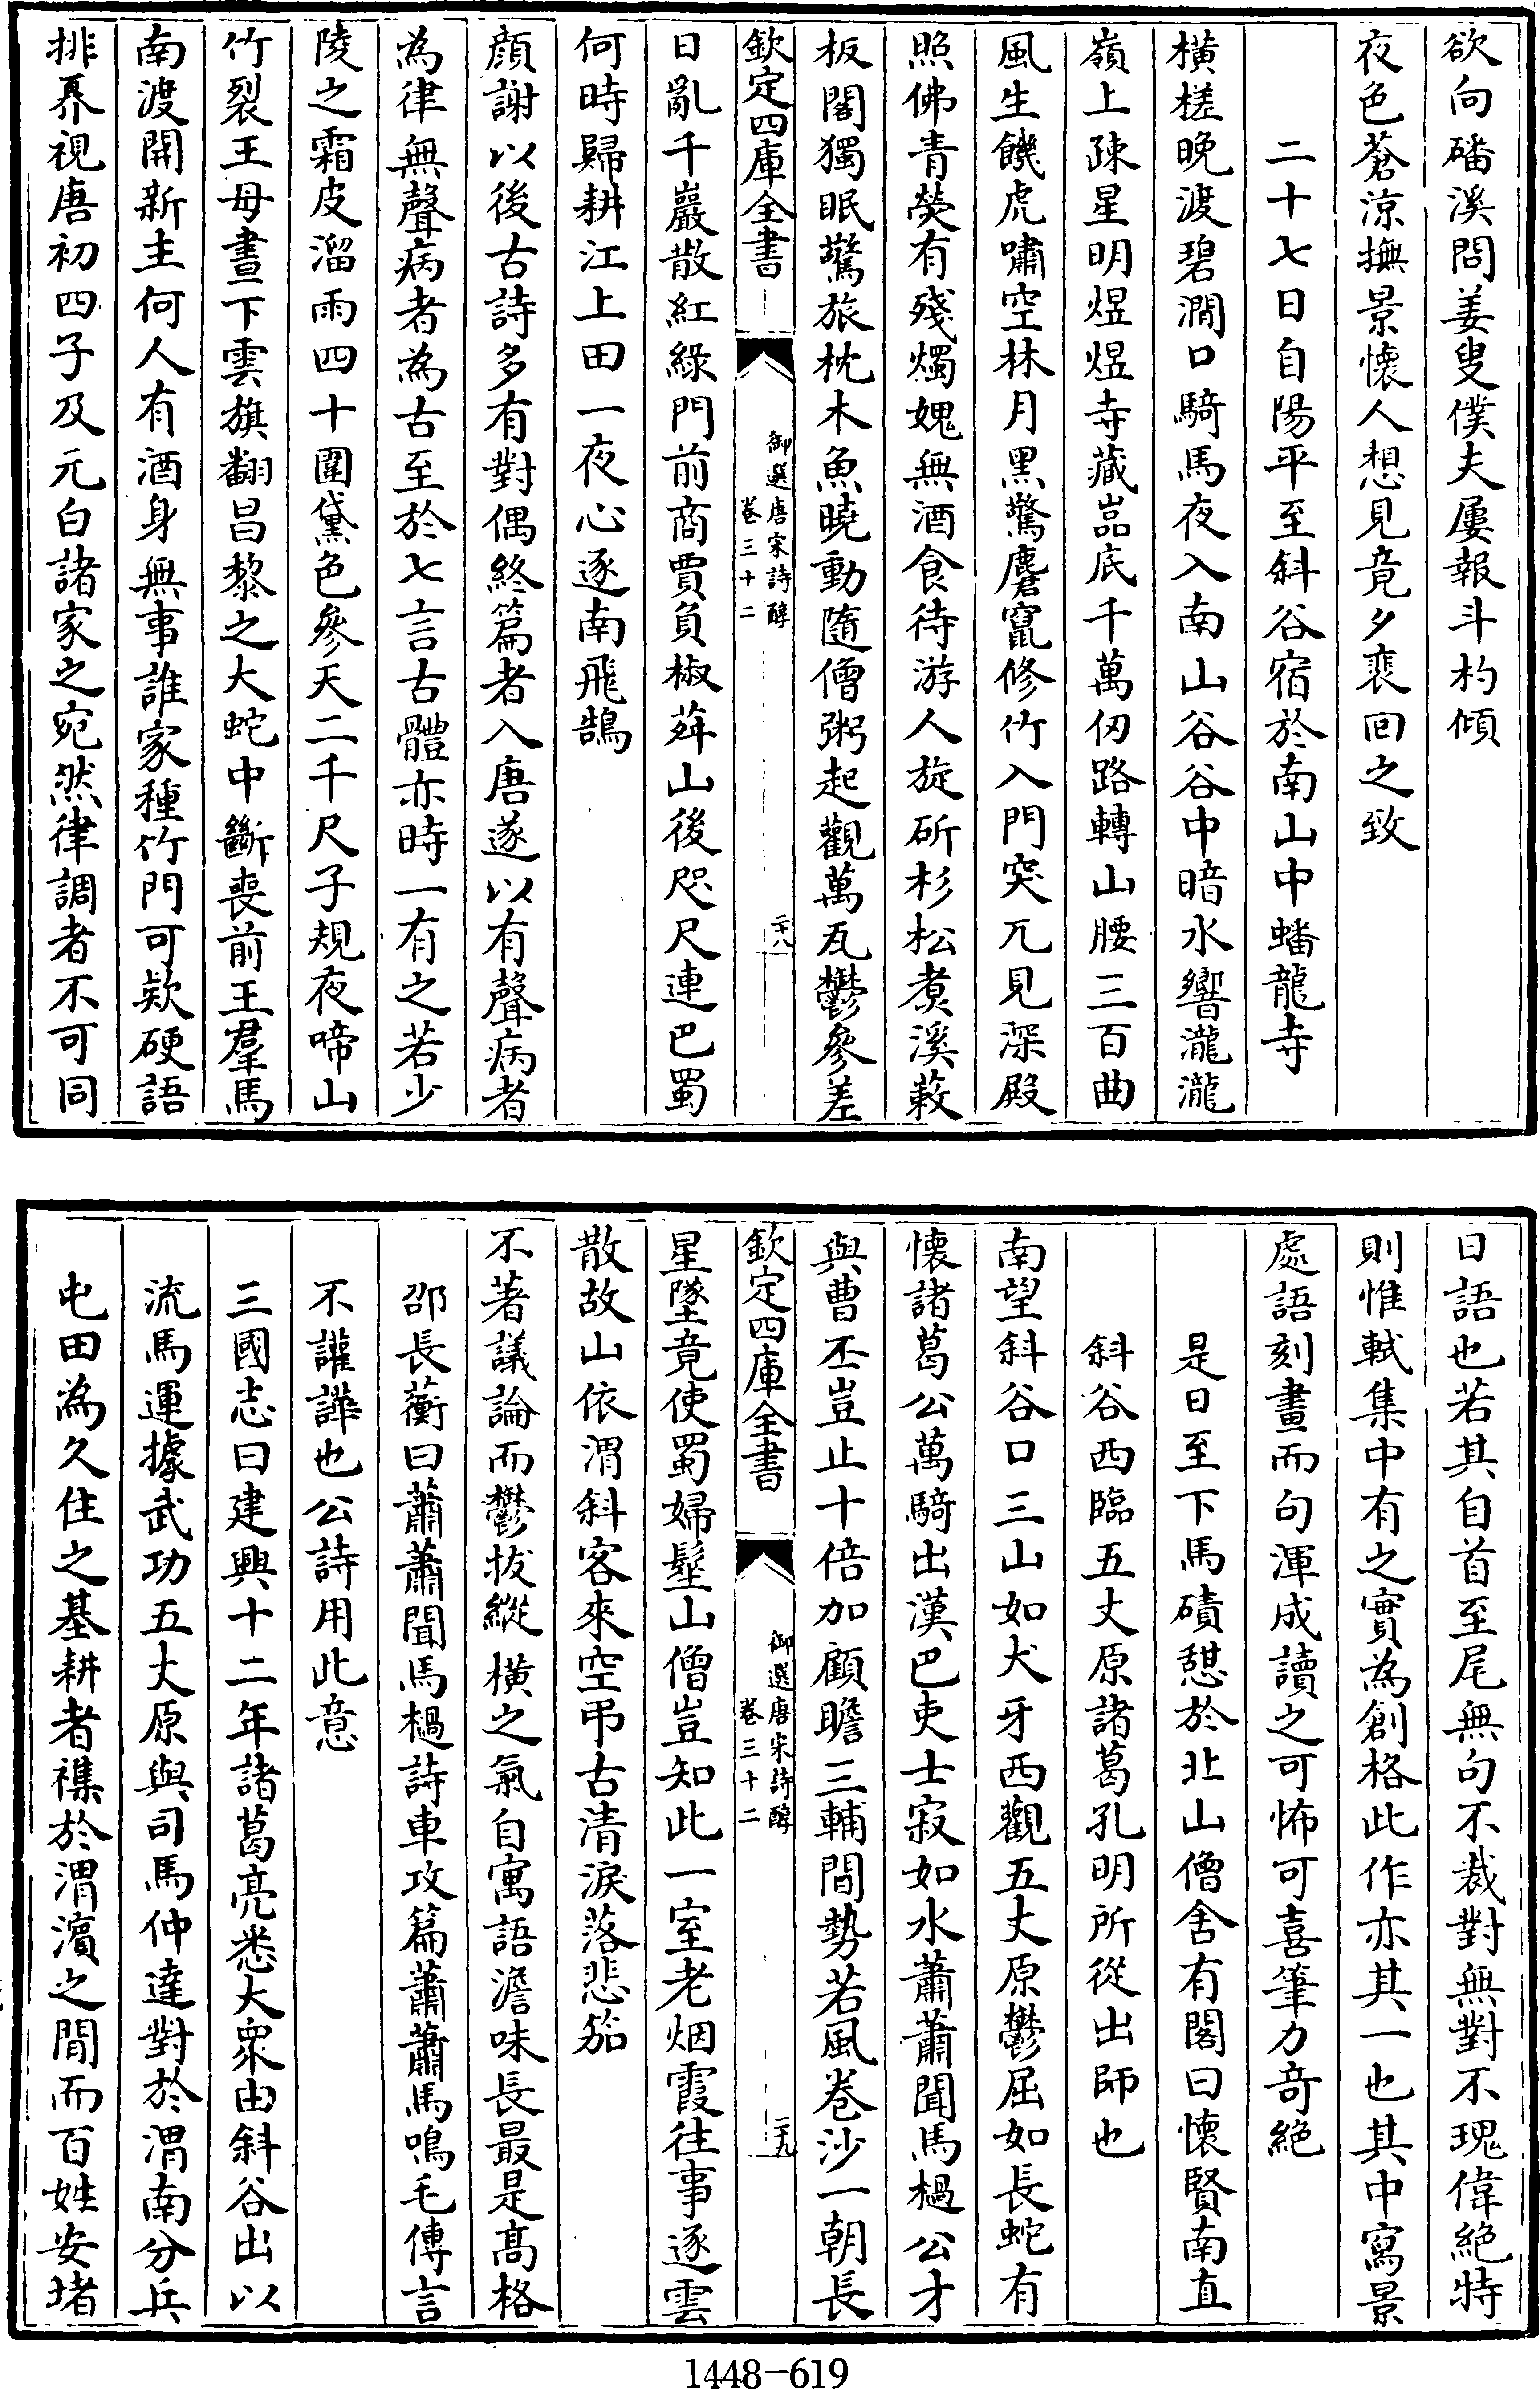 欲向磻溪問姜叟僕夫屢報斗杓傾
夜色蒼涼撫景懷人想見竟夕裵回之致
二十七日自陽平至斜谷宿於南山中蟠龍寺
橫槎晚渡碧澗口騎馬夜入南山谷谷中暗水響瀧瀧
嶺上疎星明煜煜寺藏嵓底千萬仞路轉山腰三百曲
風生饑虎嘯空林月黑驚麏竄修竹入門突兀見深殿
照佛青熒有殘燭媿無酒食待游人旋斫杉松煑溪蔌
板閣獨眠驚旅枕木魚曉動隨僧粥起觀萬瓦鬱參差
欽定四庫全書
御選唐宋詩醇
卷三十二
二十八
日亂千巖散紅綠門前商賈負椒荈山後咫尺連巴蜀
何時歸耕江上田一夜心逐南飛鵠
顔謝以後古詩多有對偶終篇者入唐遂以有聲病者
為律無聲病者為古至於七言古體亦時一有之若少
陵之霜皮溜雨四十圍黛色參天二千尺子規夜啼山
竹裂王母晝下雲旗翻昌黎之大蛇中斷喪前王羣馬
南渡開新主何人有酒身無事誰家種竹門可欵硬語
排奡視唐初四子及元白諸家之宛然律調者不可同
日語也若其自首至尾無句不裁對無對不瑰偉絶特
則惟軾集中有之實為創格此作亦其一也其中寫景
處語刻畫而句渾成讀之可怖可喜筆力奇絶
是日至下馬磧憇於北山僧舍有閣曰懷賢南直
斜谷西臨五丈原諸葛孔明所從出師也
南望斜谷口三山如犬牙西觀五丈原鬱屈如長蛇有
懷諸葛公萬騎出漢巴吏士寂如水蕭蕭聞馬檛公才
與曹丕豈止十倍加顧瞻三輔間勢若風卷沙一朝長
欽定四庫全書
御選唐宋詩醇
卷三十二
二十九
星墜竟使蜀婦髽山僧豈知此一室老烟霞往事逐雲
散故山依渭斜客來空弔古清淚落悲笳
不著議論而鬱拔縱橫之氣自寓語澹味長最是高格
邵長蘅曰蕭蕭聞馬檛詩車攻篇蕭蕭馬鳴毛傳言
不讙譁也公詩用此意
三國志曰建興十二年諸葛亮悉大衆由斜谷出以
流馬運據武功五丈原與司馬仲達對於渭南分兵
屯田為久住之基耕者襍於渭濱之間而百姓安堵
1448-619